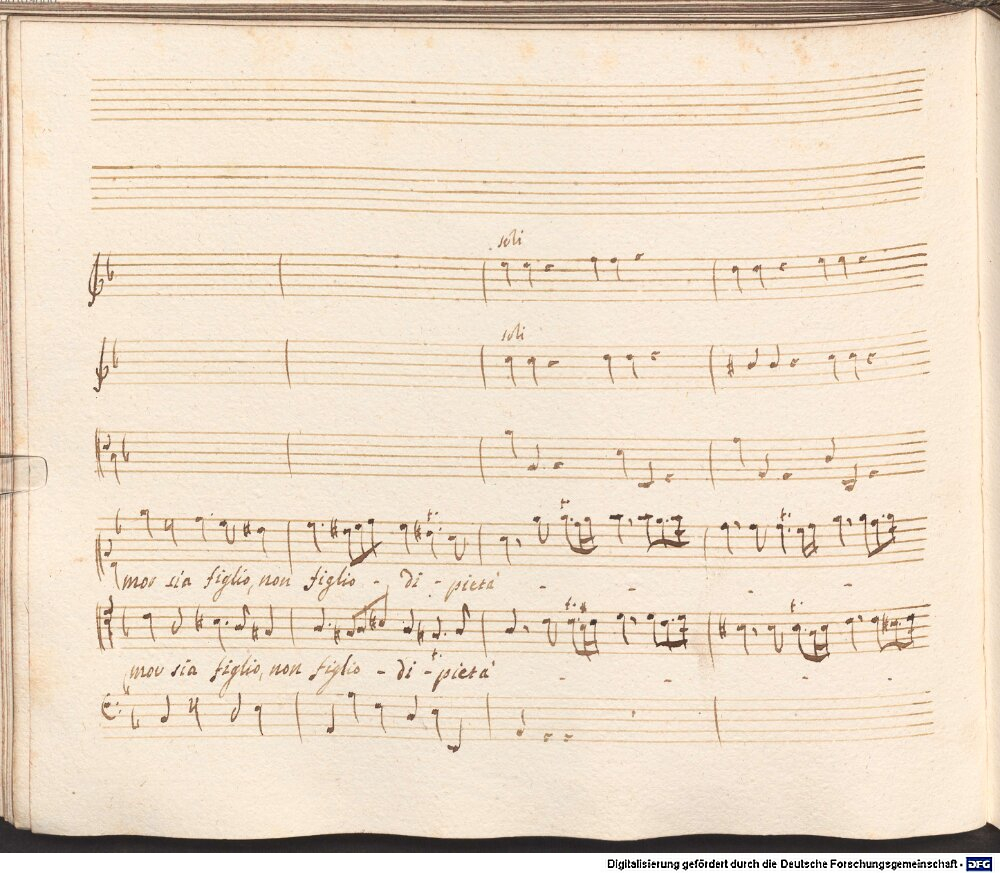 soli
soli
mor sia figlio, non figlio - di - pietà - - - -
mor sia figlio, non figlio - di - pietà - - - -
Digitalisierung gefördert durch die Deutsche Forschungsgemeinschaft - DFG